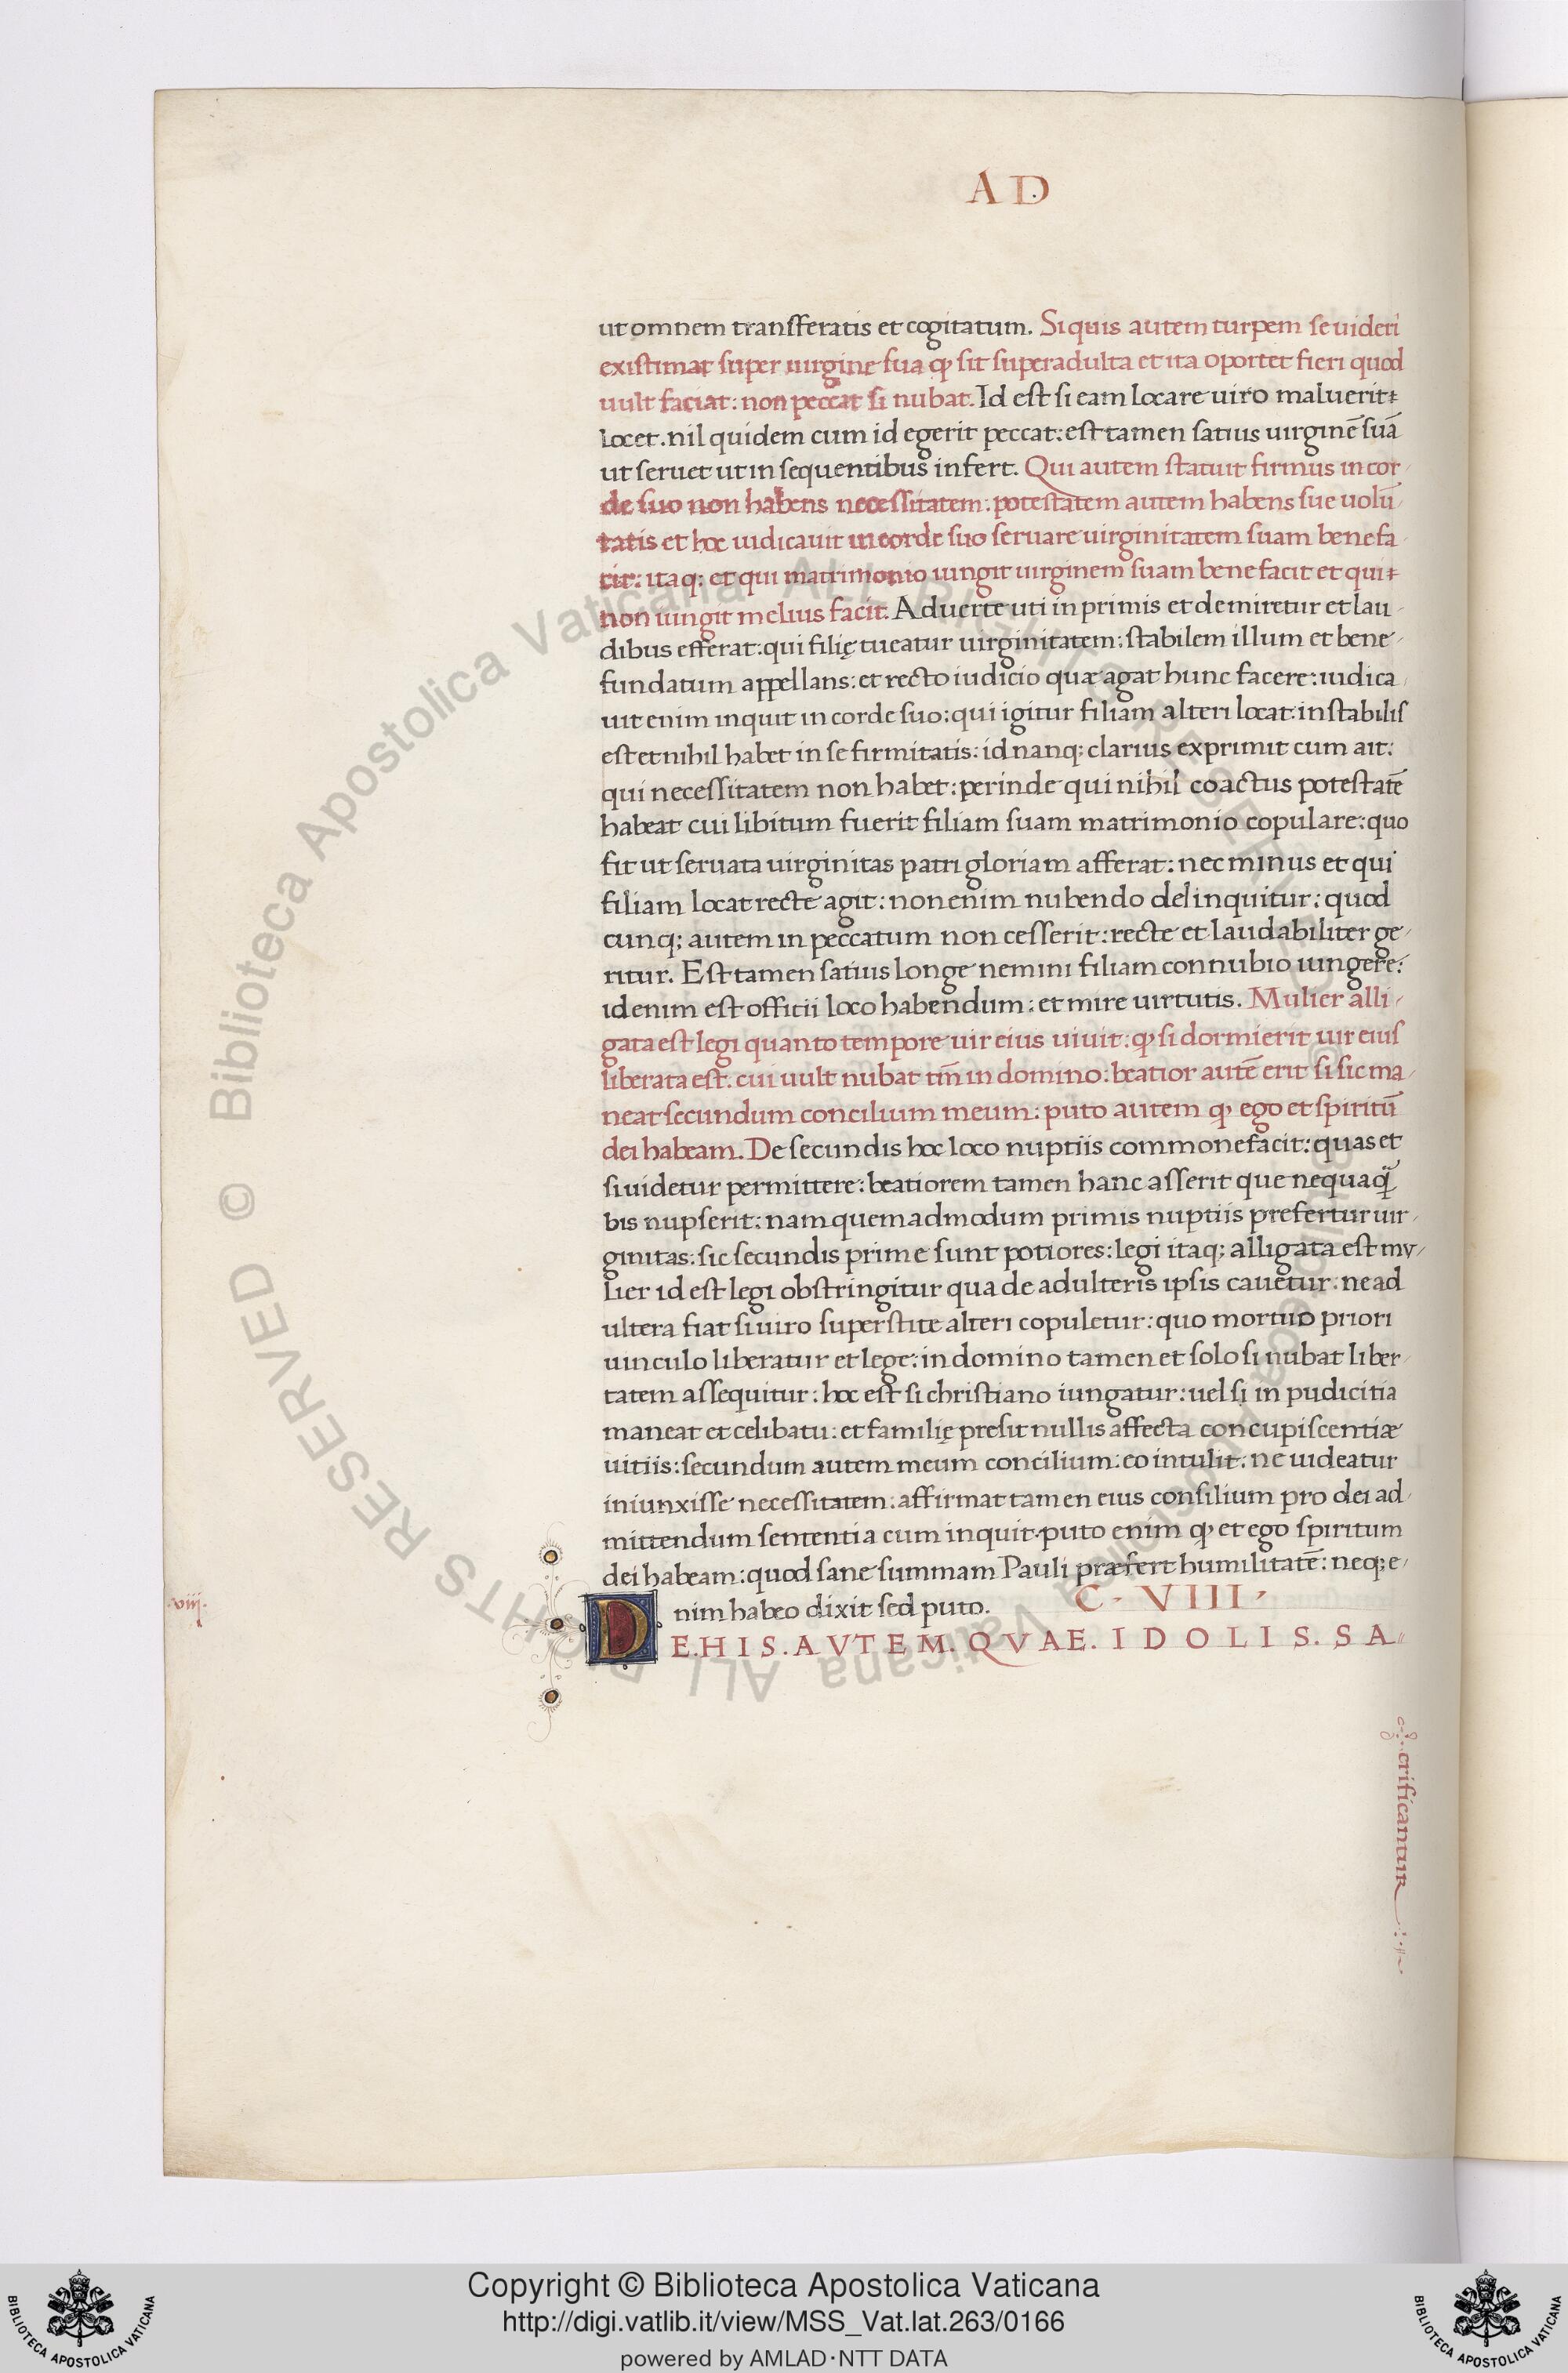 AD
ut omnem transferatis et cogitatum. Si quis autem turpem se uideri
existimat super uirgine sua ꝙ sit superadulta et ita oportet fieri quod
uult faciat: non peccat si nubat. Id est si eam locare uiro maluerit
locet. nil quidem cum id egerit peccat: est tamen satius uirginē suā
ut seruet ut in sequentibus infert. Qui autem statuit firmus in cor-
de suo non habens necessitatem. potestatem autem habens sue uolū-
tatis et hoc iudicauit in corde suo seruare uirginitatem suam bene fa-
cit: itaq; et qui matrimonio iungit uirginem suam bene facit et qui
non iungit melius facit. Aduerte uti in primis et demiretur et lau-
dibus efferat: qui filię tueatur uirginitatem: stabilem illum et bene-
fundatum appellans: et recto iudicio quæ agat hunc facere: iudica-
uit enim inquit in corde suo: qui igitur filiam alteri locat: instabilis
est et nihil habet in se firmitatis: id nanq; clarius exprimit cum ait:
qui necessitatem non habet: perinde qui nihil coactus potestatē
habeat cui libitum fuerit filiam suam matrimonio copulare: quo
fit ut seruata uirginitas patri gloriam afferat: nec minus et qui
filiam locat recte agit: non enim nubendo delinquitur: quod
cunq; autem in peccatum non cesserit: recte et laudabiliter ge-
ritur. Est tamen satius longe nemini filiam connubio iungere:
id enim est officii loco habendum: et mire uirtutis. Mulier alli-
gata est legi quanto tempore uir eius uiuit: ꝙ si dormierit uir eius
liberata est. cui uult nubat tm̄ in domino: beatior autē erit si sic ma-
neat secundum concilium meum: puto autem ꝙ ego et spiritū
dei habeam. De secundis hoc loco nuptiis commonefacit: quas et
si uidetur permittere: beatiorem tamen hanc asserit que nequaq̃
bis nupserit: nam quemadmodum primis nuptiis prefertur uir-
ginitas: sic secundis prime sunt potiores: legi itaq; alligata est mv-
lier id est legi obstringitur qua de adulteris ipsis cauetur: ne ad
ultera fiat si uiro superstite alteri copuletur: quo mortuo priori
uinculo liberatur et lege: in domino tamen et solo si nubat liber-
tatem assequitur: hoc est si christiano iungatur: uel si in pudicitia
maneat et celibatu: et familię presit nullis affecta concupiscentiæ
uitiis: secundum autem meum concilium: eo intulit: ne uideatur
iniunxisse necessitatem: affirmat tamen eius consilium pro dei ad-
mittendum sententia cum inquit. puto enim ꝙ et ego spiritum
dei habeam: quod sane summam Pauli præfert humilitatē: neq; e-
nim habeo dixit sed puto. C. VIII
.viii.
DE. HIS. AVTEM. QVAE. IDOLIS. SA-
crificantur
© Biblioteca Apostolica Vaticana ALL RIGHTS RESERVED © Biblioteca Apostolica Vaticana ALL RIGHTS RESERVED
Copyright © Biblioteca Apostolica Vaticana
http://digi.vatlib.it/view/MSS_Vat.lat.263/0166
powered by AMLAD·NTT DATA
BIBLIOTECA APOSTOLICA VATICANA
BIBLIOTECA APOSTOLICA VATICANA